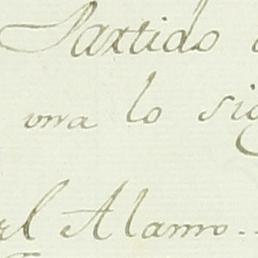 Partido
una lo sig
el Alamo..